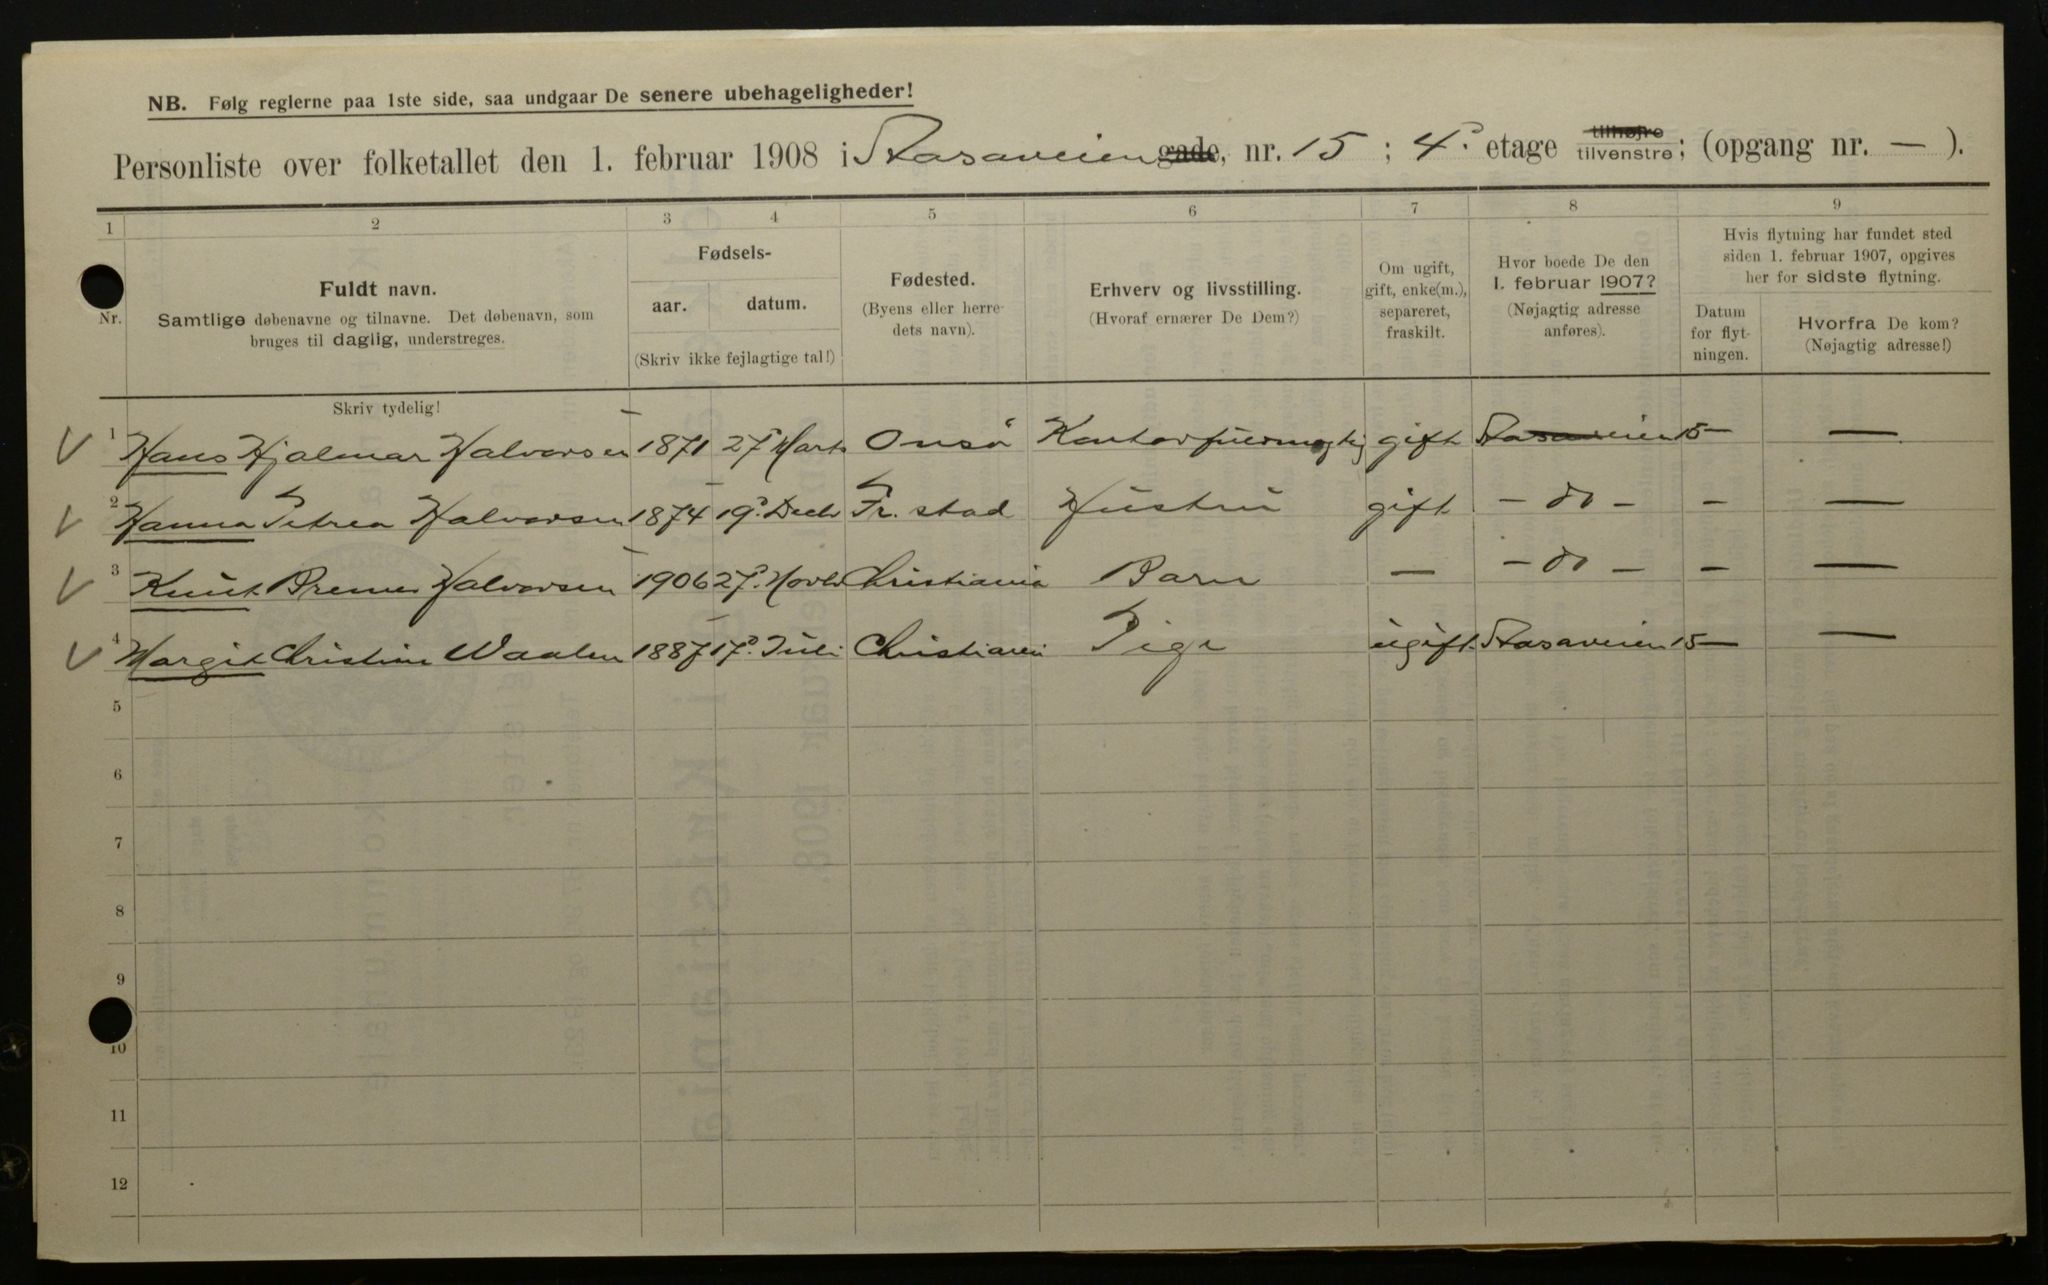 NB. Følg reglerne paa 1ste side, saa undgaar De senere ubehageligheder!
Personliste over folketallet den 1. februar 1908 i Stasaveien gade, nr. 15 ; 4. etage tilhøjre tilvenstre; (opgang nr. — ).
1 2 3 4 5 6 7 8 9
Nr.
Fuldt navn.
Samtlige døbenavne og tilnavne. Det døbenavn, som
bruges til daglig, understreges.
Fødsels-
aar. datum.
(Skriv ikke fejlagtige tal!)
Fødested.
(Byens eller herre-
dets navn).
Erhverv og livsstilling.
(Hvoraf ernærer De Dem?)
Om ugift,
gift, enke(m.),
separeret,
fraskilt.
Hvor boede De den
1. februar 1907?
(Nøjagtig adresse
anføres).
Hvis flytning har fundet sted
siden 1. februar 1907, opgives
her for sidste flytning.
Datum
for flyt-
ningen.
Hvorfra De kom?
(Nøjagtig adresse!)
Skriv tydelig!
1 Hans Hjalmar Halvorsen 1871 27 Marts Onsø gift Stasaveien 15 — —
2 Hanna Petrea Halvorsen 1874 19. Decbr Fr. stad Hustru gift - do - - —
3 Knut Halvorsen 1906 27. Novbr Christiania Barn — - do - - —
4 Margit Christine Waaler 1887 17. Juli Christiania Pige ugift Stasaveien 15 — —
5
6
7
8
9
10
11
12